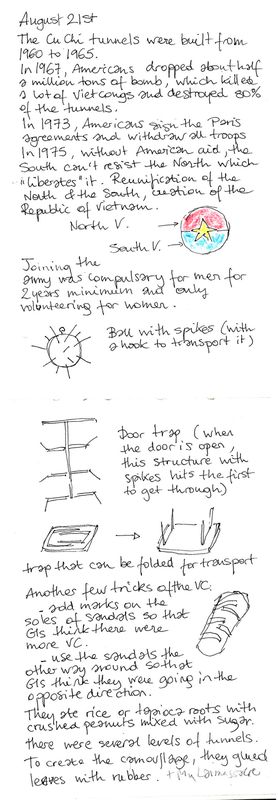 August 21st
The Cu Chi tunnels were built from
1960 to 1965.
In 1967, Americans dropped about half
a million tons of bomb, which killed
a lot of Vietcongs and destroyed 80%
of the tunnels.
In 1973, Americans sign the Paris
agreements and withdraw all troops
In 1975, without American aid, the
South can't resist the North which
"liberates" it. Reunification of the
North & the South, creation of the
Republic of Vietnam.
North V.
South V.
Joining the
army was compulsary for men for
2 years minimum and only
volunteering for women.
Ball with spikes (with
a hook to transport it)
Door trap (when
the door is open,
this structure with
spikes hits the first
to get through)
trap that can be folded for transport
Another few tricks of the VC:
- add marks on the
soles of sandals so that
GIs think there were
more VC.
- use the sandals the
other way around so that
GIs think they were going in the
opposite direction.
They ate rice or tapioca roots with
crushed peanuts mixed with sugar.
there were several levels of tunnels.
To create the camouflage, they glued
leaves with rubber. + My Lai massacre